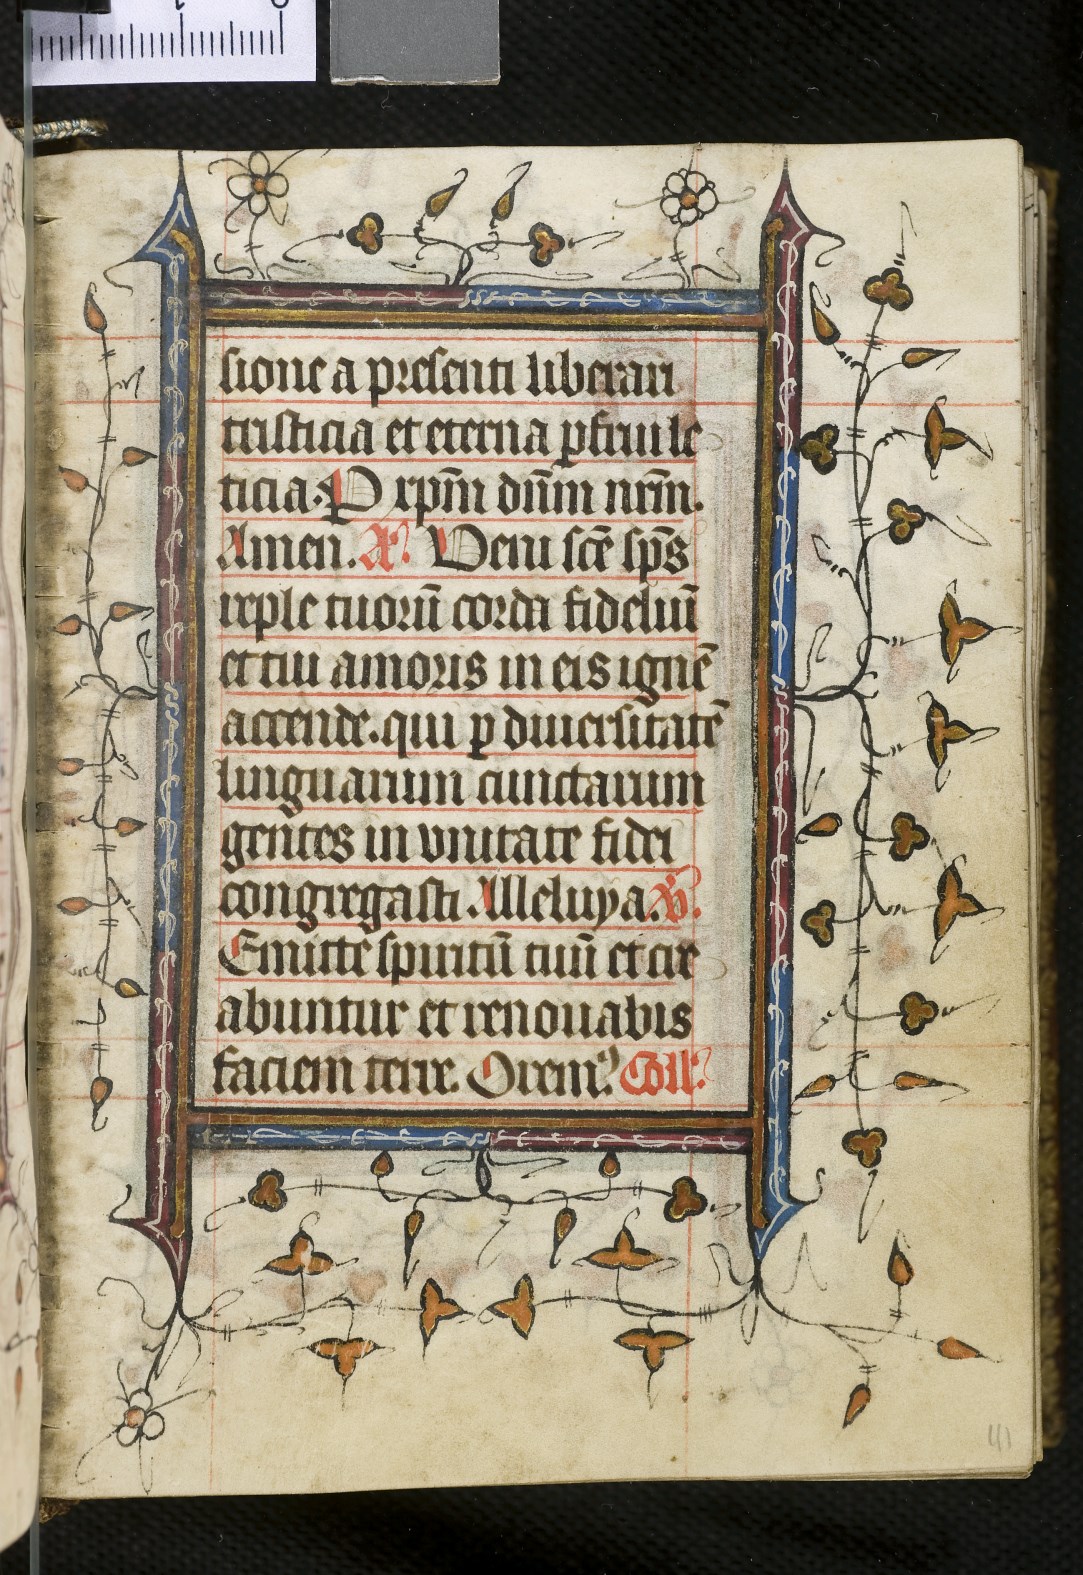 sione a presenti liberari
tristicia et eterna ꝑfrui le
ticia. P xp̄m dn̄m nr̄m.
Amen. A᷒. Veni sc̄e sp̄s
reple tuorū corda fideliū
et tui amoris in eis ignē
accende. qui ꝑ diuersitatē
linguarum cunctarum
gentes in vnitate fidei
congregasti. Alleluya. V̄.
Emitte spiritū tuū et cre
abuntur et renouabis
faciem terre. Orem᷒. Coll᷒.
41